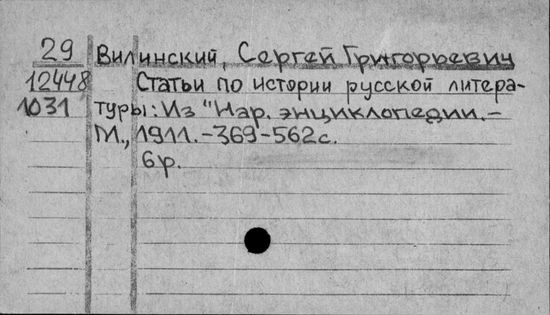 29 Вилинский, Сергей Григорьевич
12448 Статьи по истории русской литера-
1031 туры: Из "Нар. энциклопедии.-
М., 1911.-369-562с.
6р.